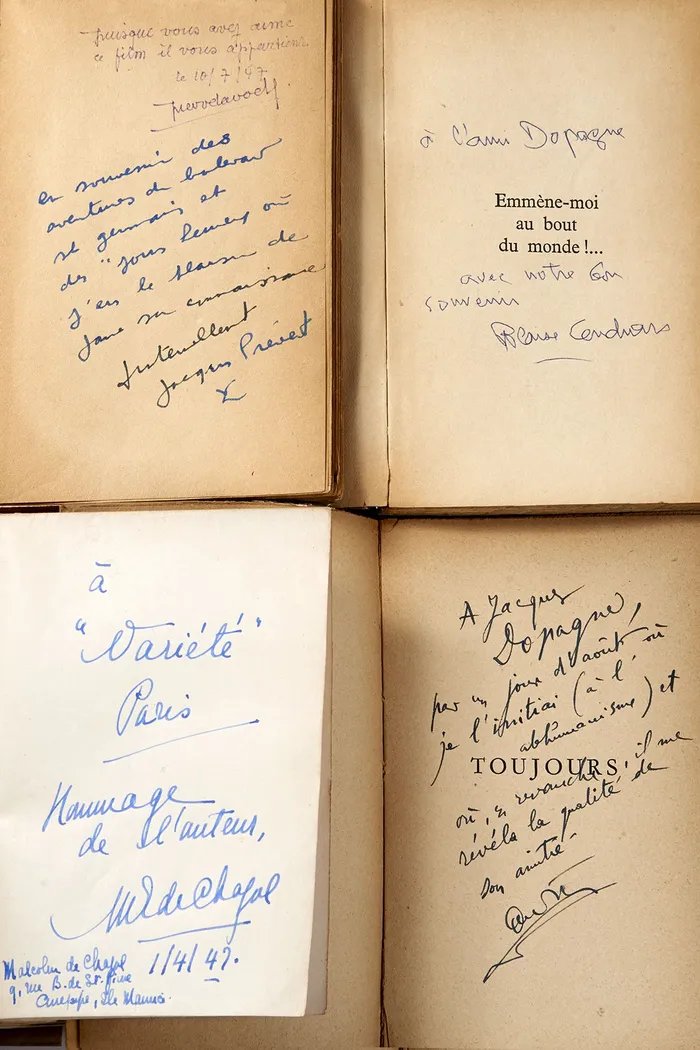 puisque vous avez aimé
ce film il vous appartient.
le 10/7/47
en souvenir des
aventures du bulevar
st germais et
des "jours heureux où
j'eus le plaisir de
faire sa connaissance
Jacques Prévert
à l'ami Dopagne
Emmène-moi
au bout
du monde !...
avec notre bon
souvenir
Blaise Cendrars
à
"Variété"
Paris
Hommage
de l'auteur,
M de Chazal
1/4/47.
Malcolm de Chazal
9, rue B. de St. Pierre
Curepipe, Ile Maurice.
A Jacques
Dopagne,
par un jour d'août, où
je l'initiai (à l'
abhumanisme) et
TOUJOURS
où, en revanche, il me
révéla la qualité de
son amitié.